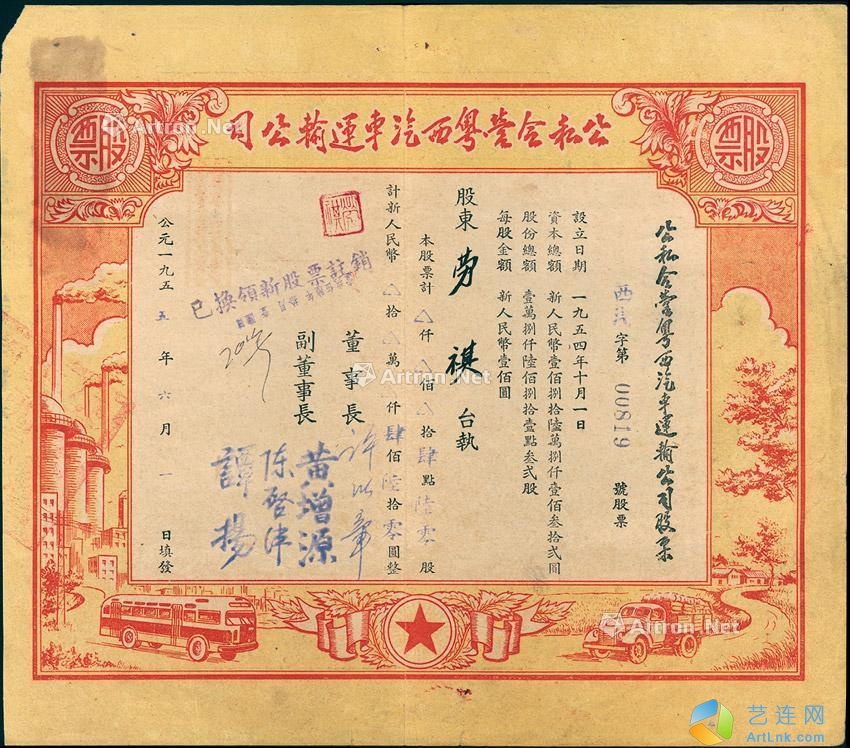 股票
公私合营粤西汽車運輸公司
股票
公私合营粤西汽車運輸公司股票
西汽字第 00819 號股票
設立日期 一九五四年十月一日
資本總額 新人民幣壹佰捌拾陸萬捌仟壹佰叁拾弍圓
股份總額 壹萬捌仟陸佰捌拾壹點叁弍股
每股金額 新人民幣壹佰圓
股東 劳祺 台執
本股票計△仟△佰△拾肆點陸零股
計新人民幣△拾△萬△仟肆佰陸拾零圓整
董事長 許以章
副董事長 黄增源
譚揚
已換領新股票註銷
公元一九五五年六月一日填發
Artron.Net
Artron.Net
Artron.Net
Artron.Net
艺连网
ArtLnk.com